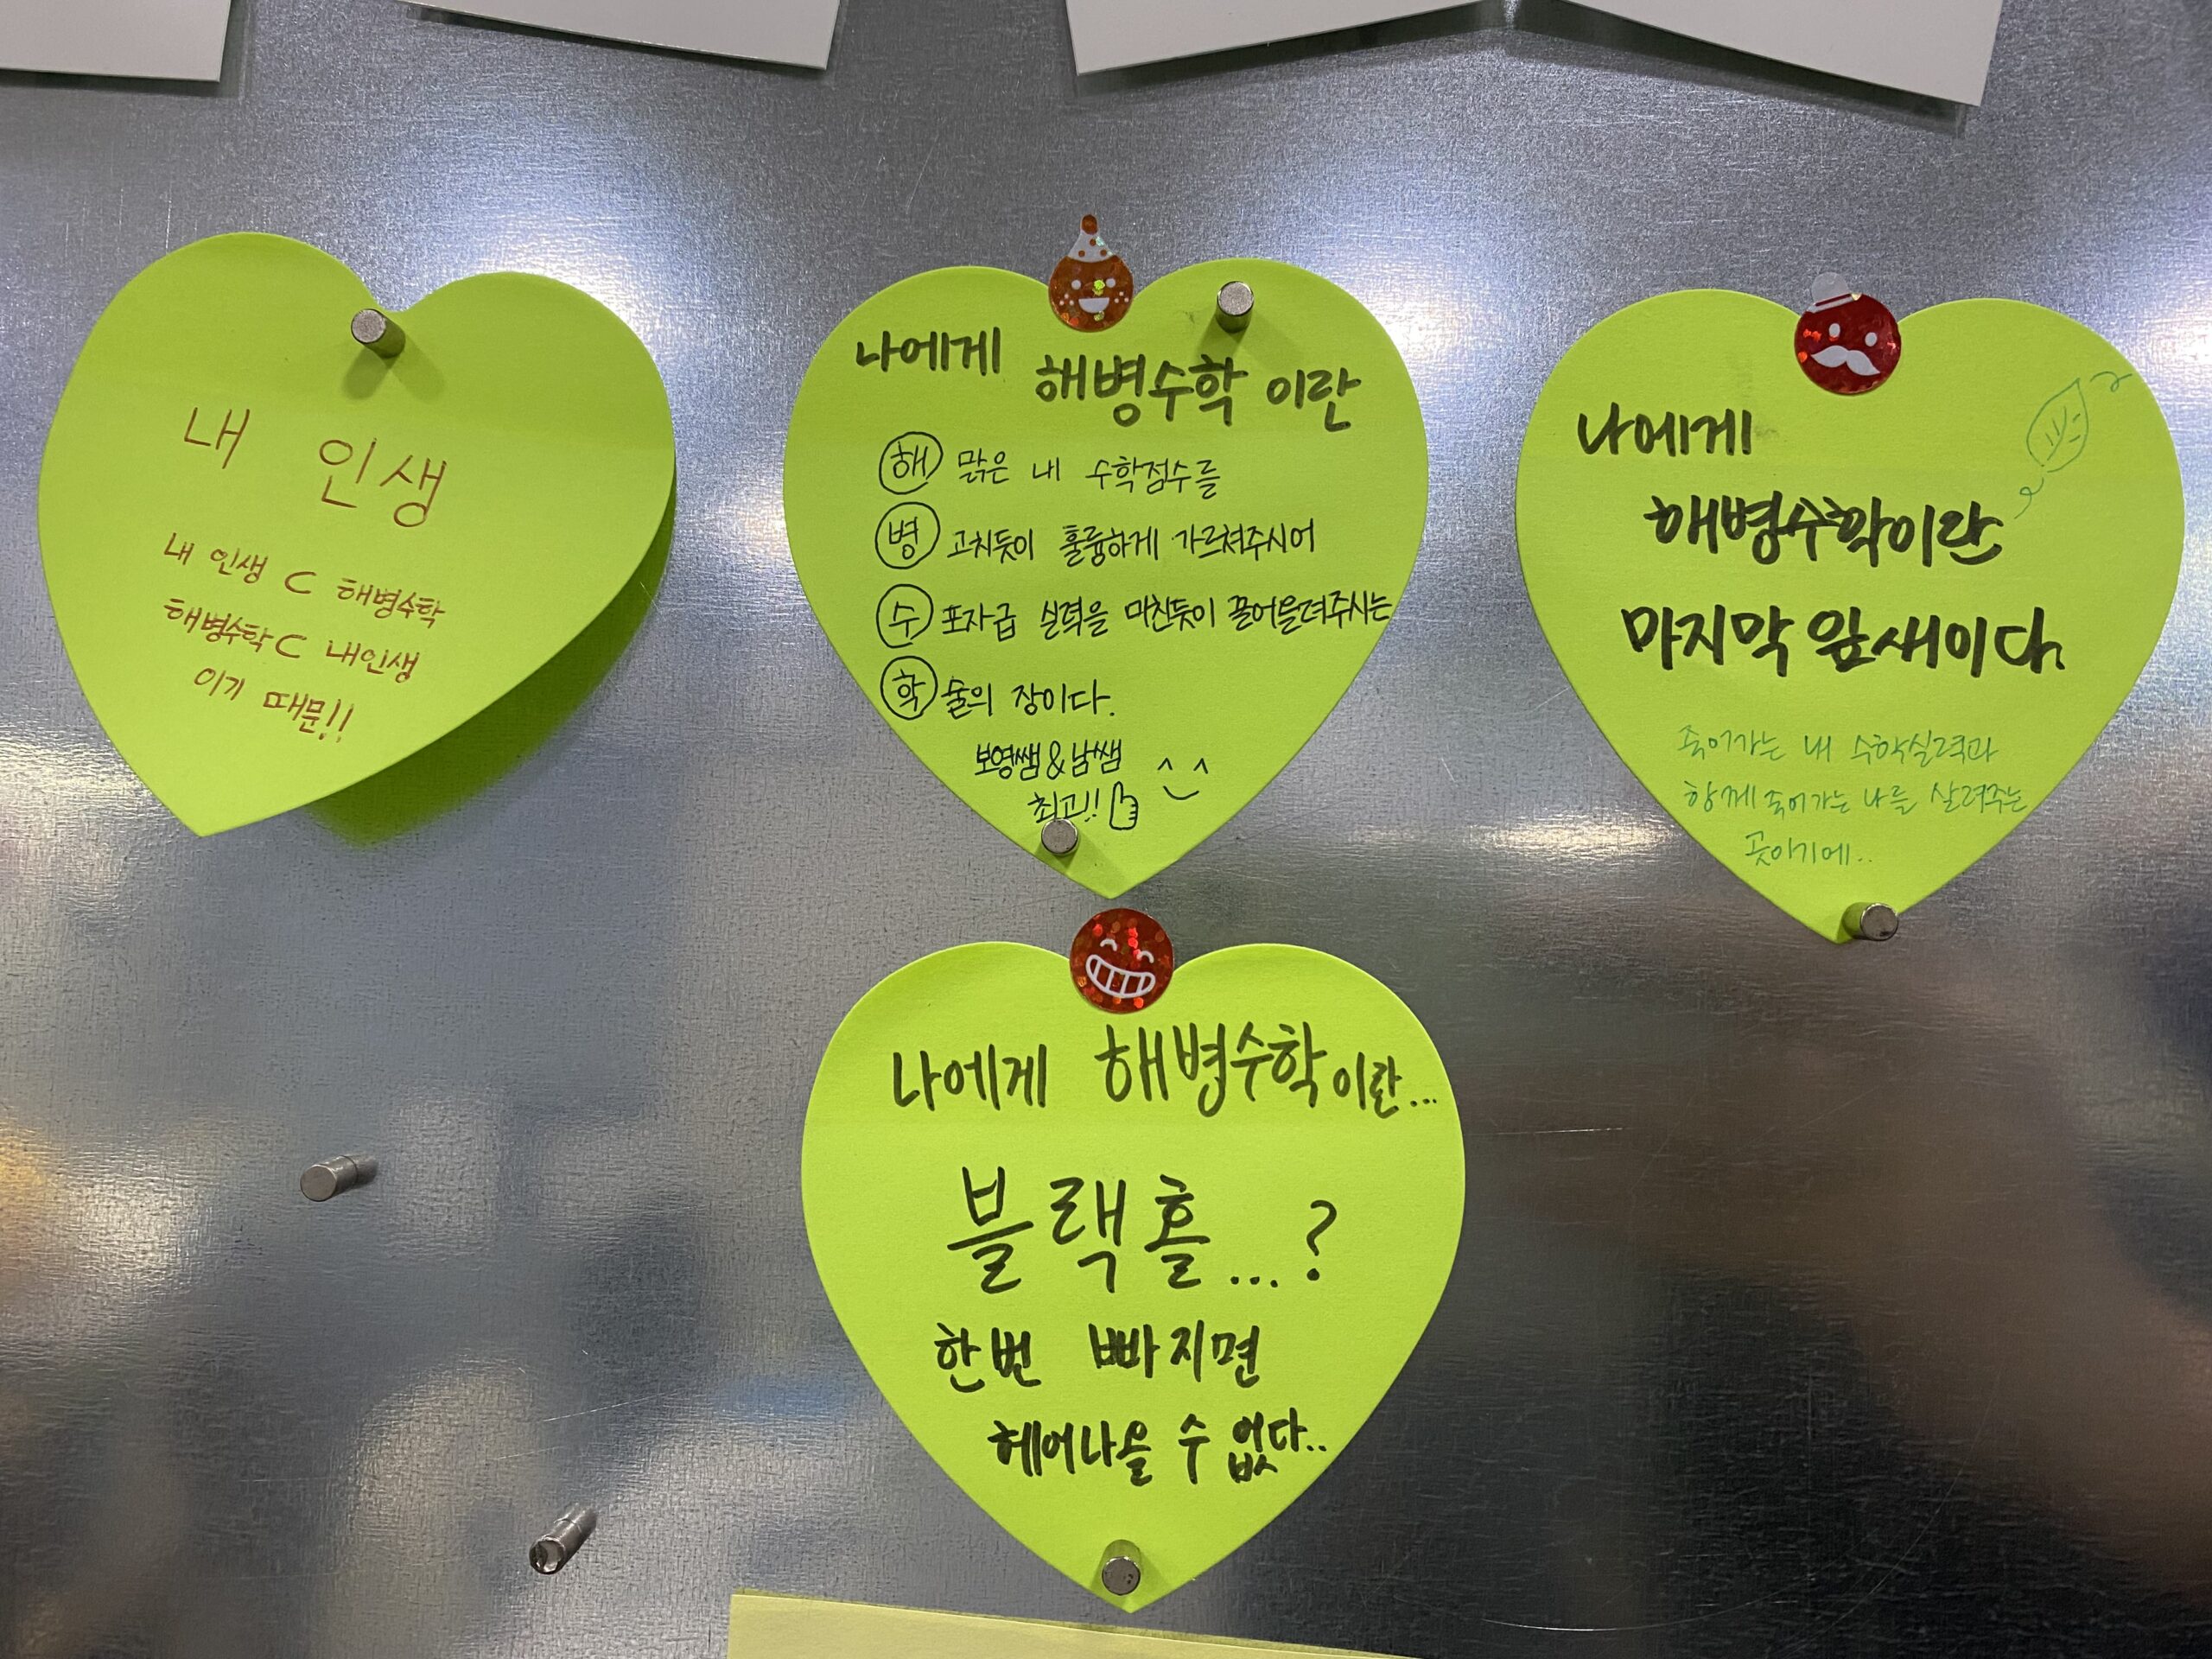 내 인생
내 인생 ⊂ 해병수학
해병수학 ⊂ 내인생
이기 때문!!
나에게 해병수학 이란
해 맑은 내 수학점수를
병 고치듯이 훌륭하게 가르쳐주시어
수 포자급 실력을 미친듯이 끌어올려주시는
학 술의 장이다.
보영쌤 & 남쌤
최고!!
나에게
해병수학이란
마지막 잎새이다
죽어가는 내 수학실력과
함께 죽어가는 나를 살려주는
곳이기에..
나에게 해병수학이란...
블랙홀...?
한번 빠지면
헤어나올 수 없다..